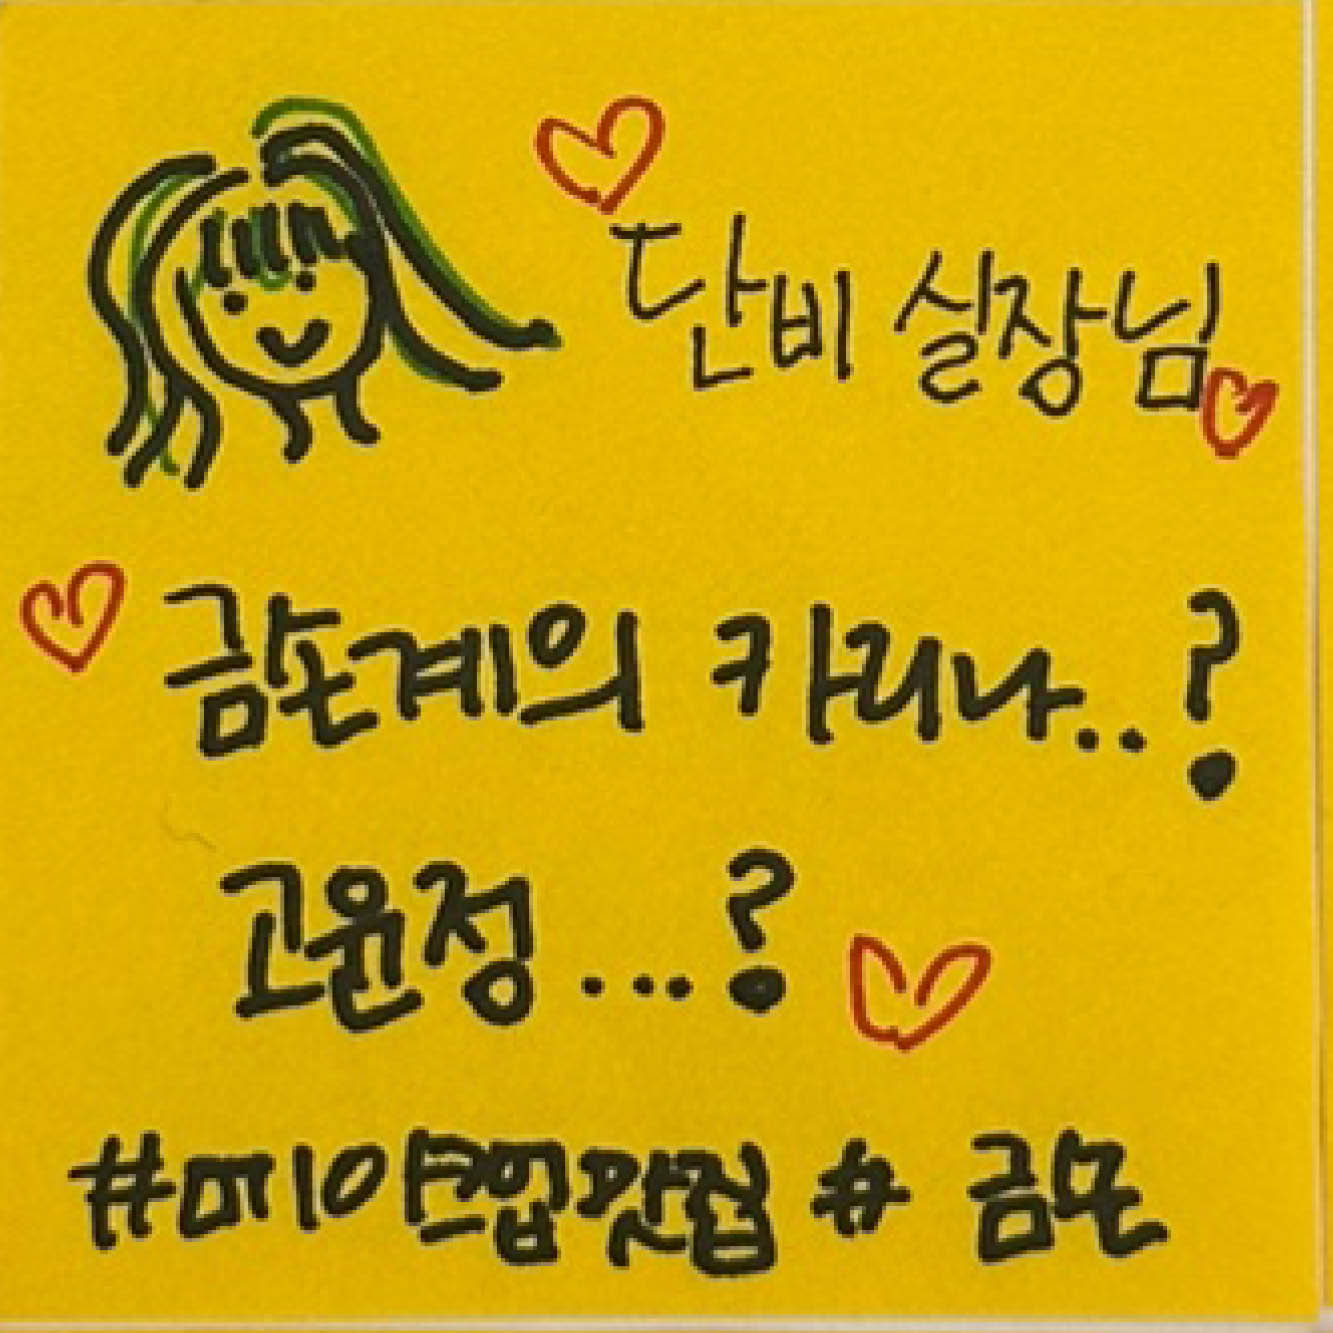 단비 실장님
금손계의 카리나..?
고윤정...?
#메이크업맛집 # 금손